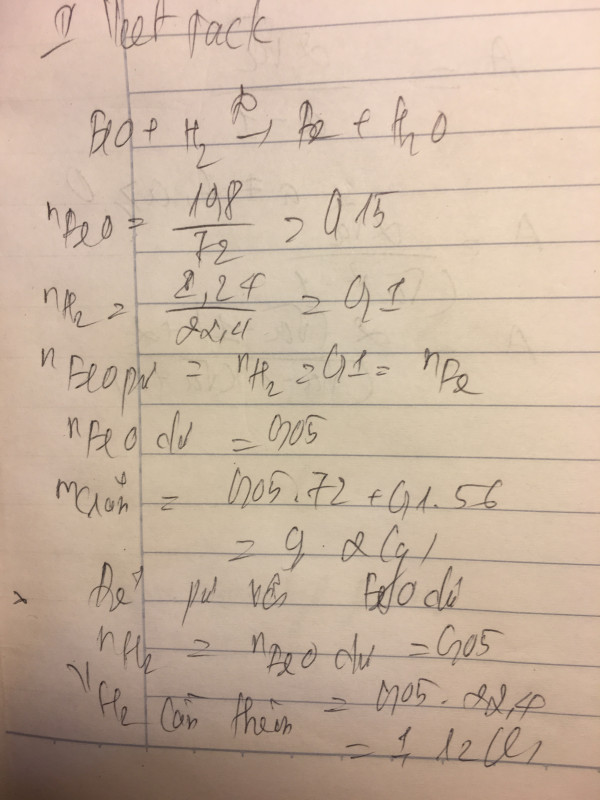 FeO + H₂ t°→ Fe + H₂O
nFeO = 10,8/72 = 0,15
nH₂ = 2,24/22,4 = 0,1
nFeO pứ = nH₂ = 0,1 = nFe
nFeO dư = 0,05
m rắn = 0,05.72 + 0,1.56
= 9.2(g)
Để pứ hết FeO dư
nH₂ = nFeO dư = 0,05
VH₂ cần thêm = 0,05.22,4
= 1,12(l)